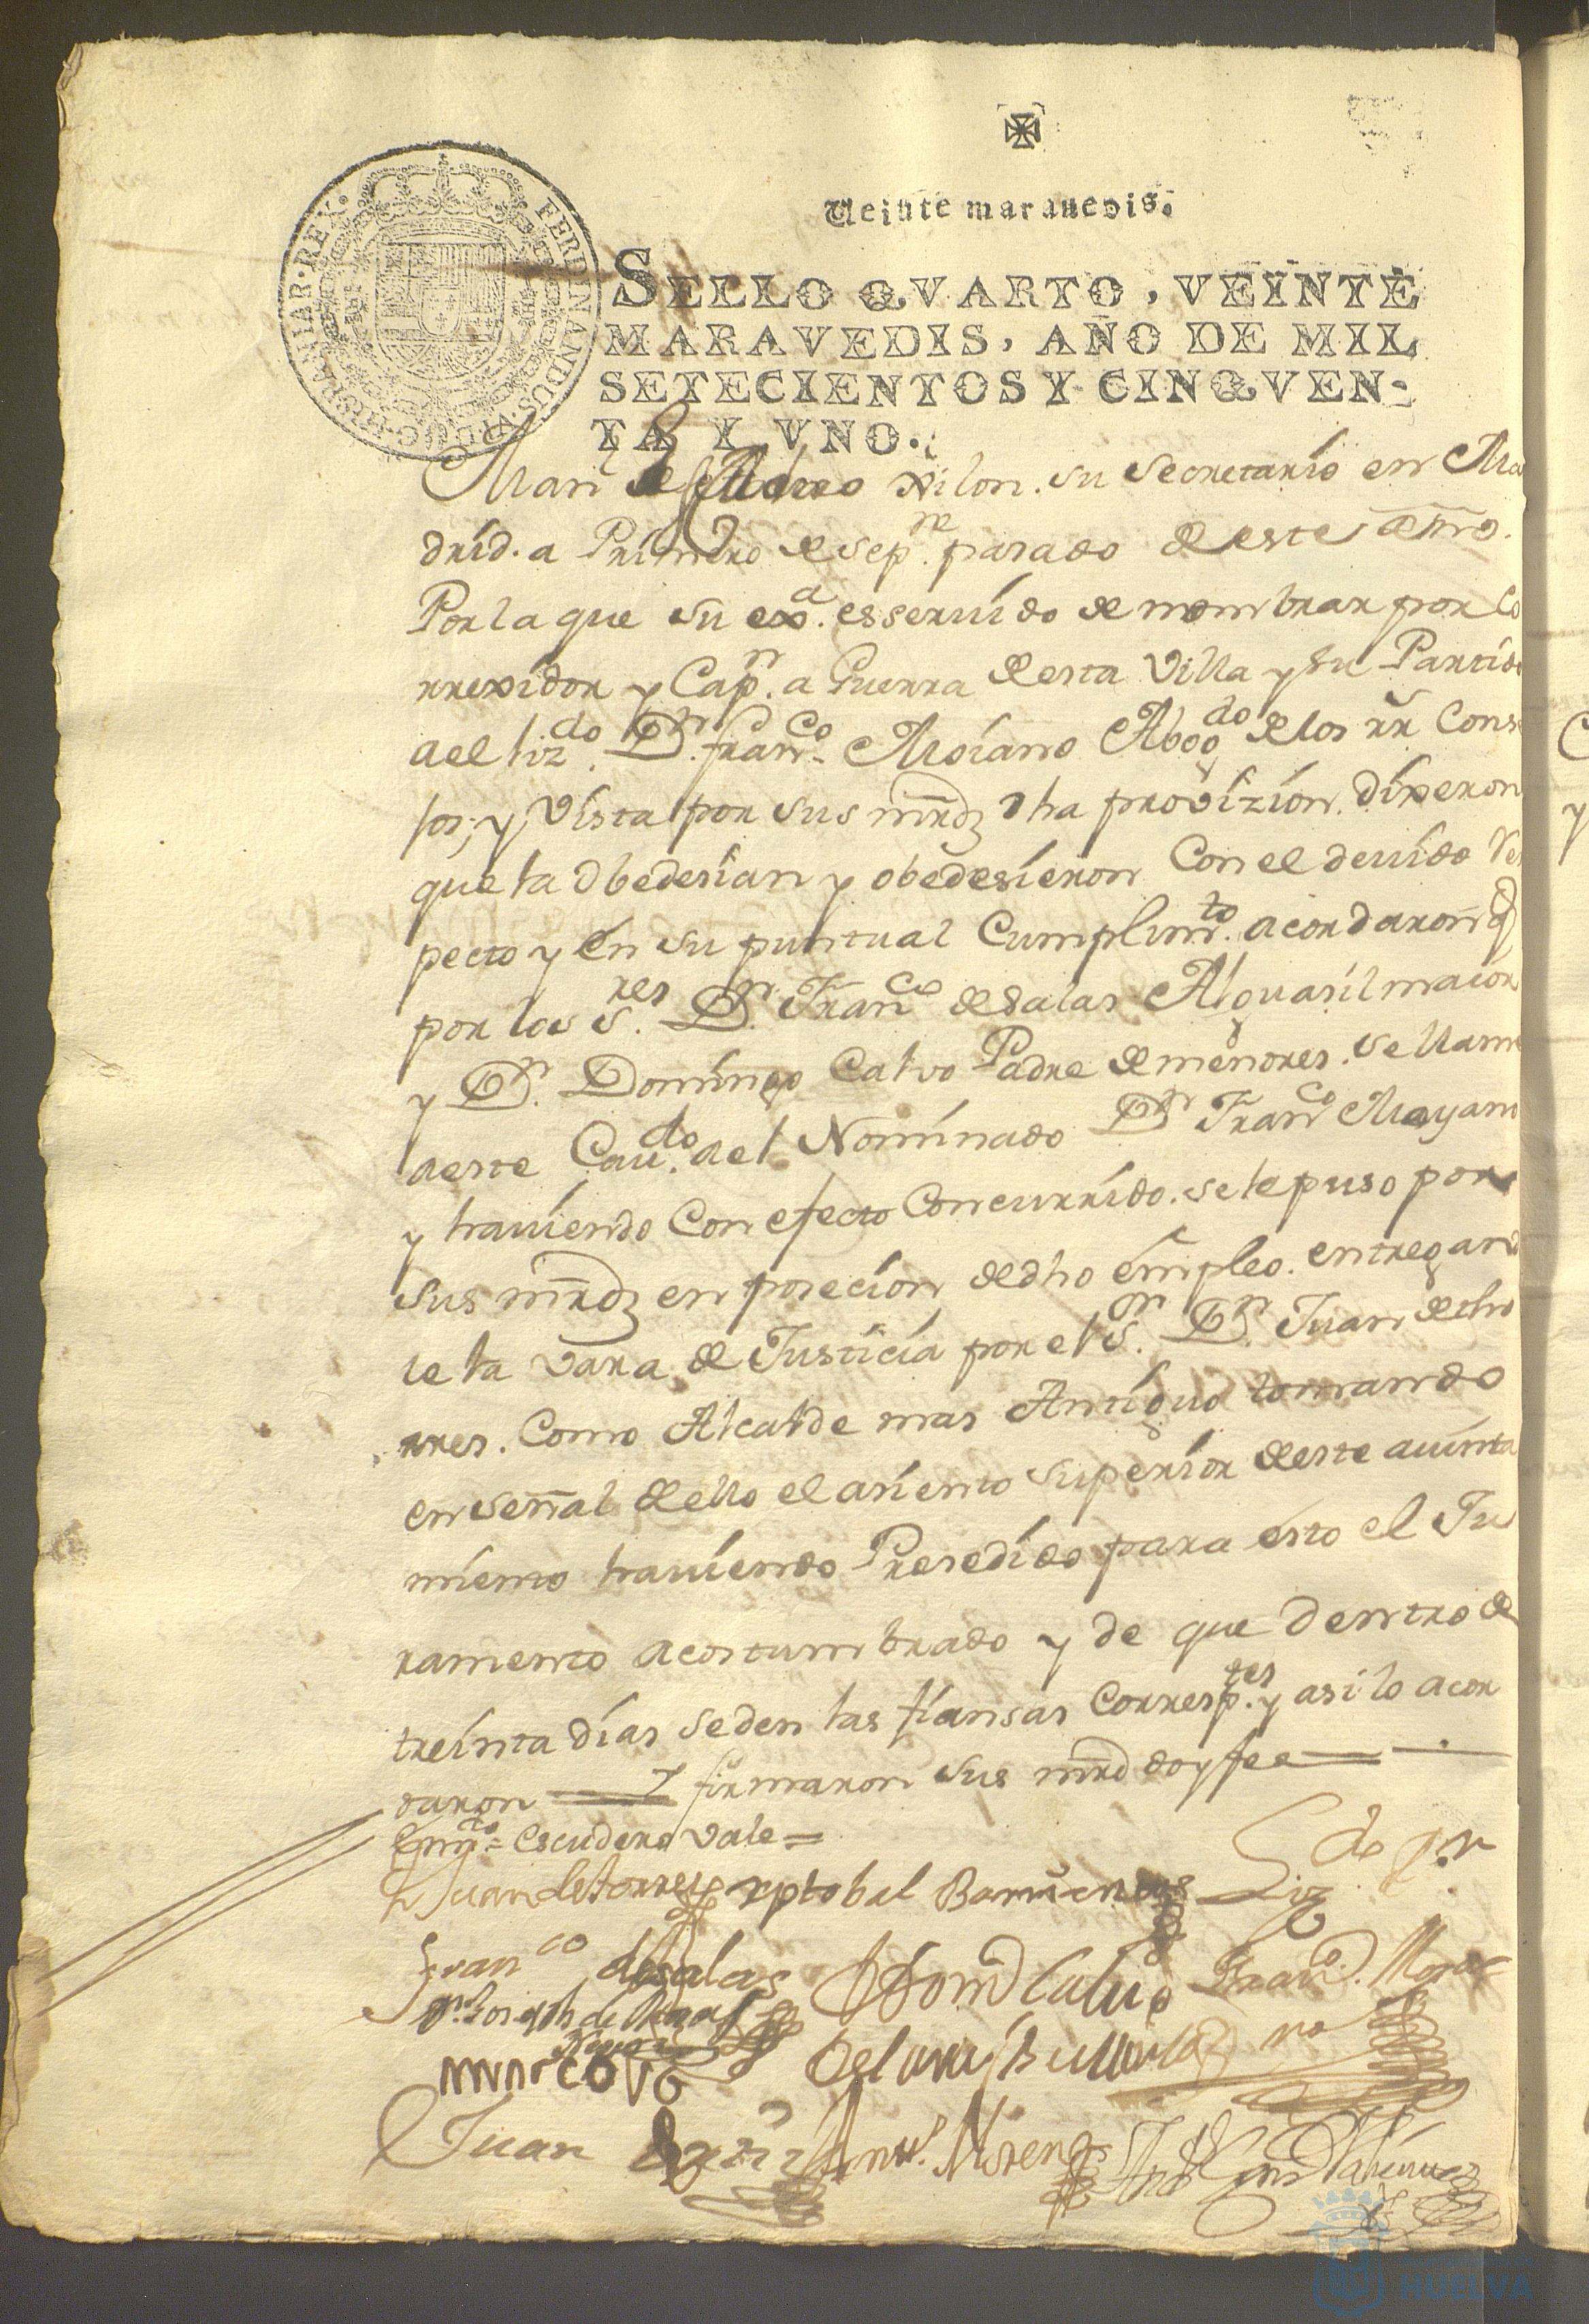 Veinte maravedis.
SELLO QVARTO, VEINTE
MARAVEDIS, AÑO DE MIL
SETECIENTOS Y CINQVEN-
TA Y VNO.
FERDINANDUS·VI·D·G·HISPANIAR·REX·
Man Nilon. su Secretario en Ma
drid. a Primero de sepre. pasado de este año.
Por la que su exa. es seruido de nombrar por Co
rrexidor y Capn. a Guerra desta Villa y su Partido
a el Lizdo. Dn. Franco Moiano Abogdo de los rr Conse
jos; y Vista por sus mrdz dha provizion. dixeron
que la obedesian y obedesieron Con el deuido Res
pecto y en su puntual Cumplimto. acordaron q
por los Sres. Dn. Franco de Salas Alguasil maior
y Dn. Domingo Calvo Padre de menores. se llame
a este Caudo. a el Nominado Dn Franco Moyano
y hauiendo Con efecto Concurrido. se le puso por
sus mrdz en posecion de dho empleo. entregand
le la vara de Justicia por el Sor. Dn. Juan de tho
rres. Como Alcalde mas Antiguo tomando
en señal de ello el asiento superior de este aiunta
miento hauiendo Presedido para esto el Ju
ramento acostumbrado y de que dentro de
treinta dias se den las fiansas Correspte.s y asi lo acor
daron = Y firmaron sus mrd doy fee =
Enmdo = Escudero Vale =
Juan de torres xptobal Barrientos Lizdo Dn
Franco de Salas Domo Calvo Franco. Moya
no
Dn. Joseph de
marco
Juan Anto. Moreno
HUELVA